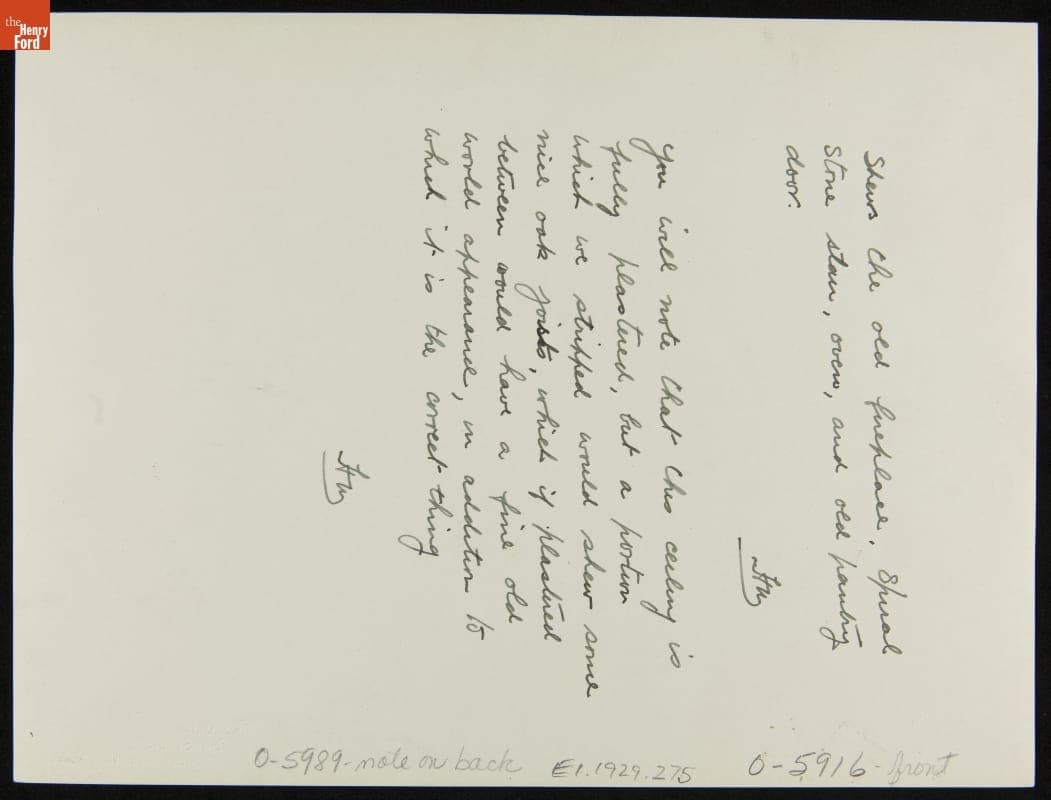 the
Henry
Ford
Shews the old fireplace. Spiral
stone stair, oven, and old pantry
door.
HM
You will note that this ceiling is
fully plastered, but a portion
which we stripped would shew some
nice oak joists, which if plastered
between would have a fine old
world appearance, in addition to
which it is the correct thing
HM
O-5989-note on back
E1.1929.275
O-5916-front